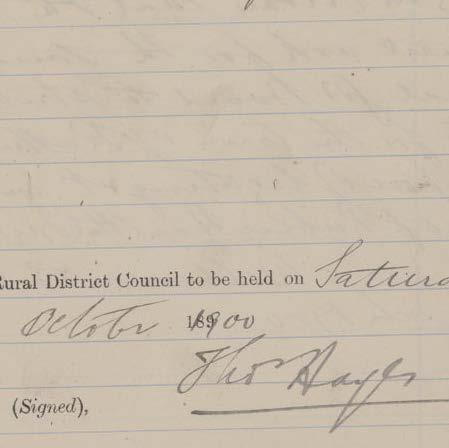 Rural District Council to be held on Saturd
October 1900
Thos Hayes
(Signed),